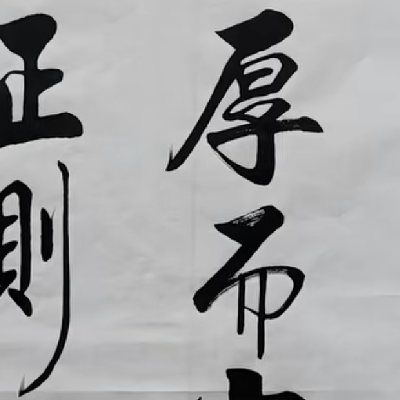 厚而
正則